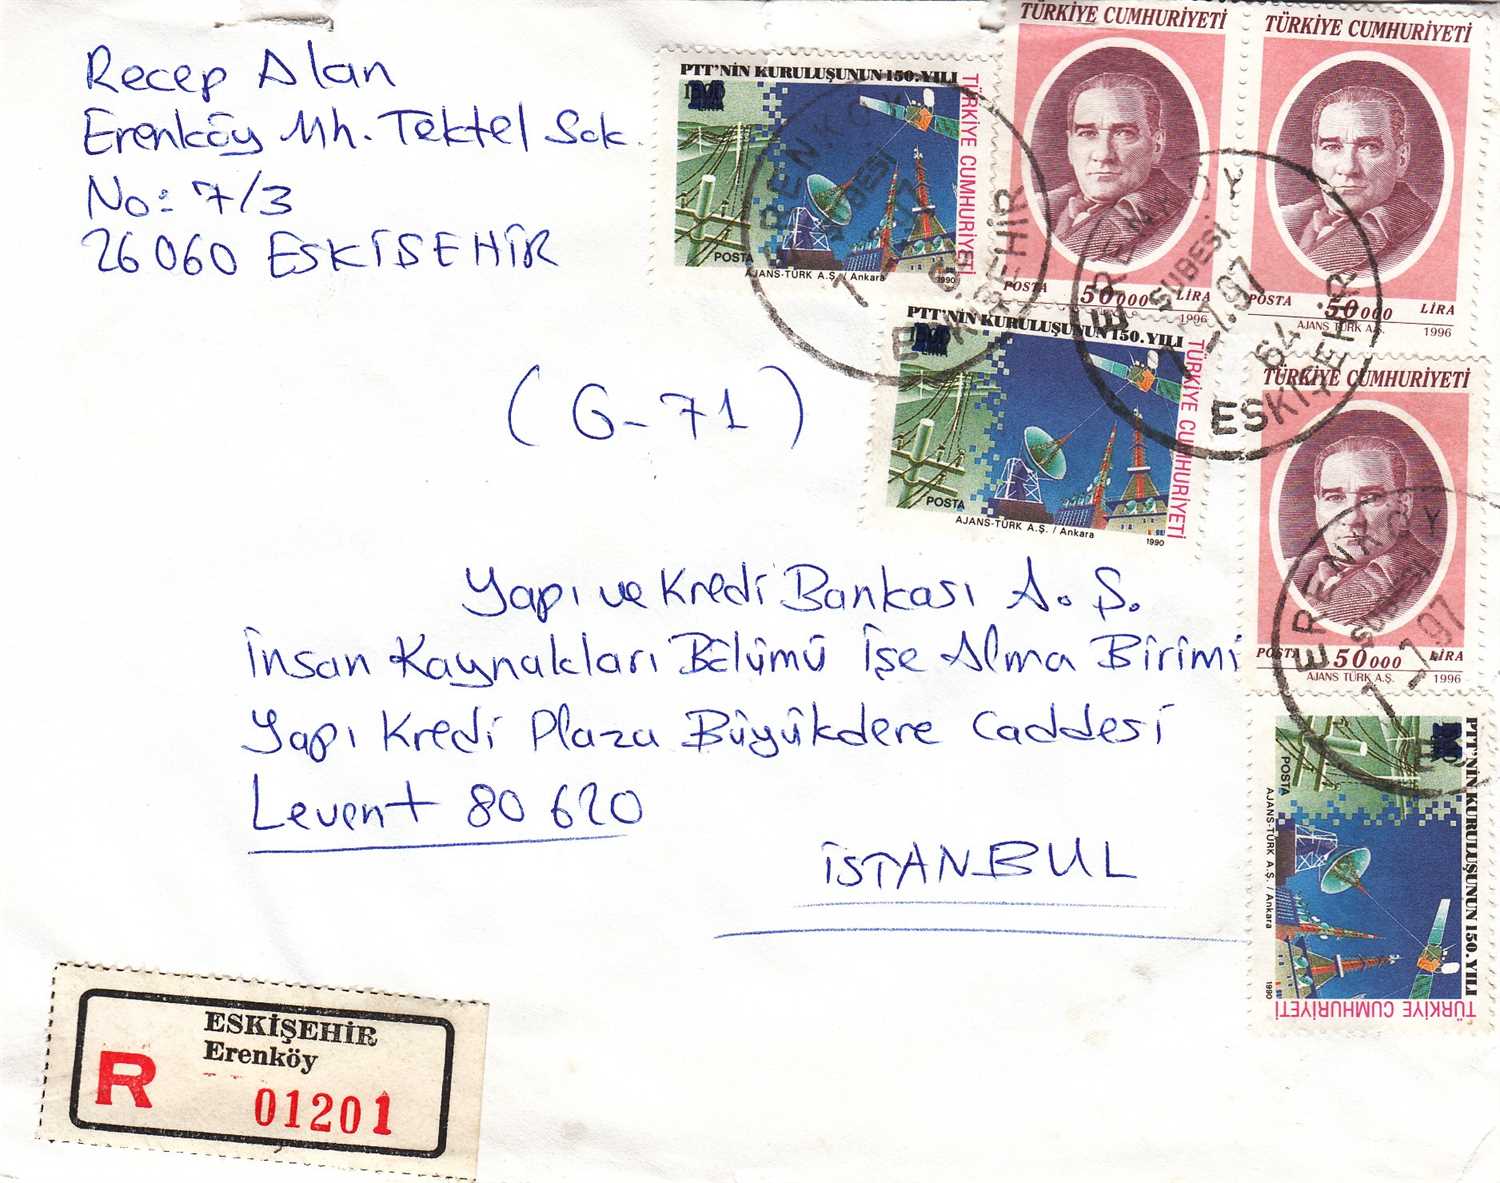 Recep Alan
Erenköy Mh. Tektel Sok.
No: 7/3
26060 ESKİŞEHİR
(G-71)
Yapı ve Kredi Bankası A.Ş.
İnsan Kaynakları Bölümü İşe Alma Birimi
Yapı Kredi Plaza Büyükdere Caddesi
Levent 80620
İSTANBUL
PTT'NİN KURULUŞUNUN 150. YILI
TÜRKİYE CUMHURİYETİ
POSTA
AJANS-TÜRK A.Ş. / Ankara
1990
TÜRKİYE CUMHURİYETİ
POSTA 50000 LİRA
1996
TÜRKİYE CUMHURİYETİ
POSTA 50000 LİRA
AJANS TÜRK A.Ş. 1996
PTT'NİN KURULUŞUNUN 150. YILI
TÜRKİYE CUMHURİYETİ
POSTA
AJANS-TÜRK A.Ş. / Ankara
1990
TÜRKİYE CUMHURİYETİ
POSTA 50000 LİRA
AJANS TÜRK A.Ş. 1996
PTT'NİN KURULUŞUNUN 150. YILI
TÜRKİYE CUMHURİYETİ
POSTA
AJANS-TÜRK A.Ş. / Ankara
1990
ERENKÖY
ŞUBESİ
ESKİŞEHİR
ERENKÖY
ŞUBESİ
1-7.97
64
ESKİŞEHİR
ERENKÖY
ŞUBESİ
1-7.97
ESKİŞEHİR
Erenköy
R
01201